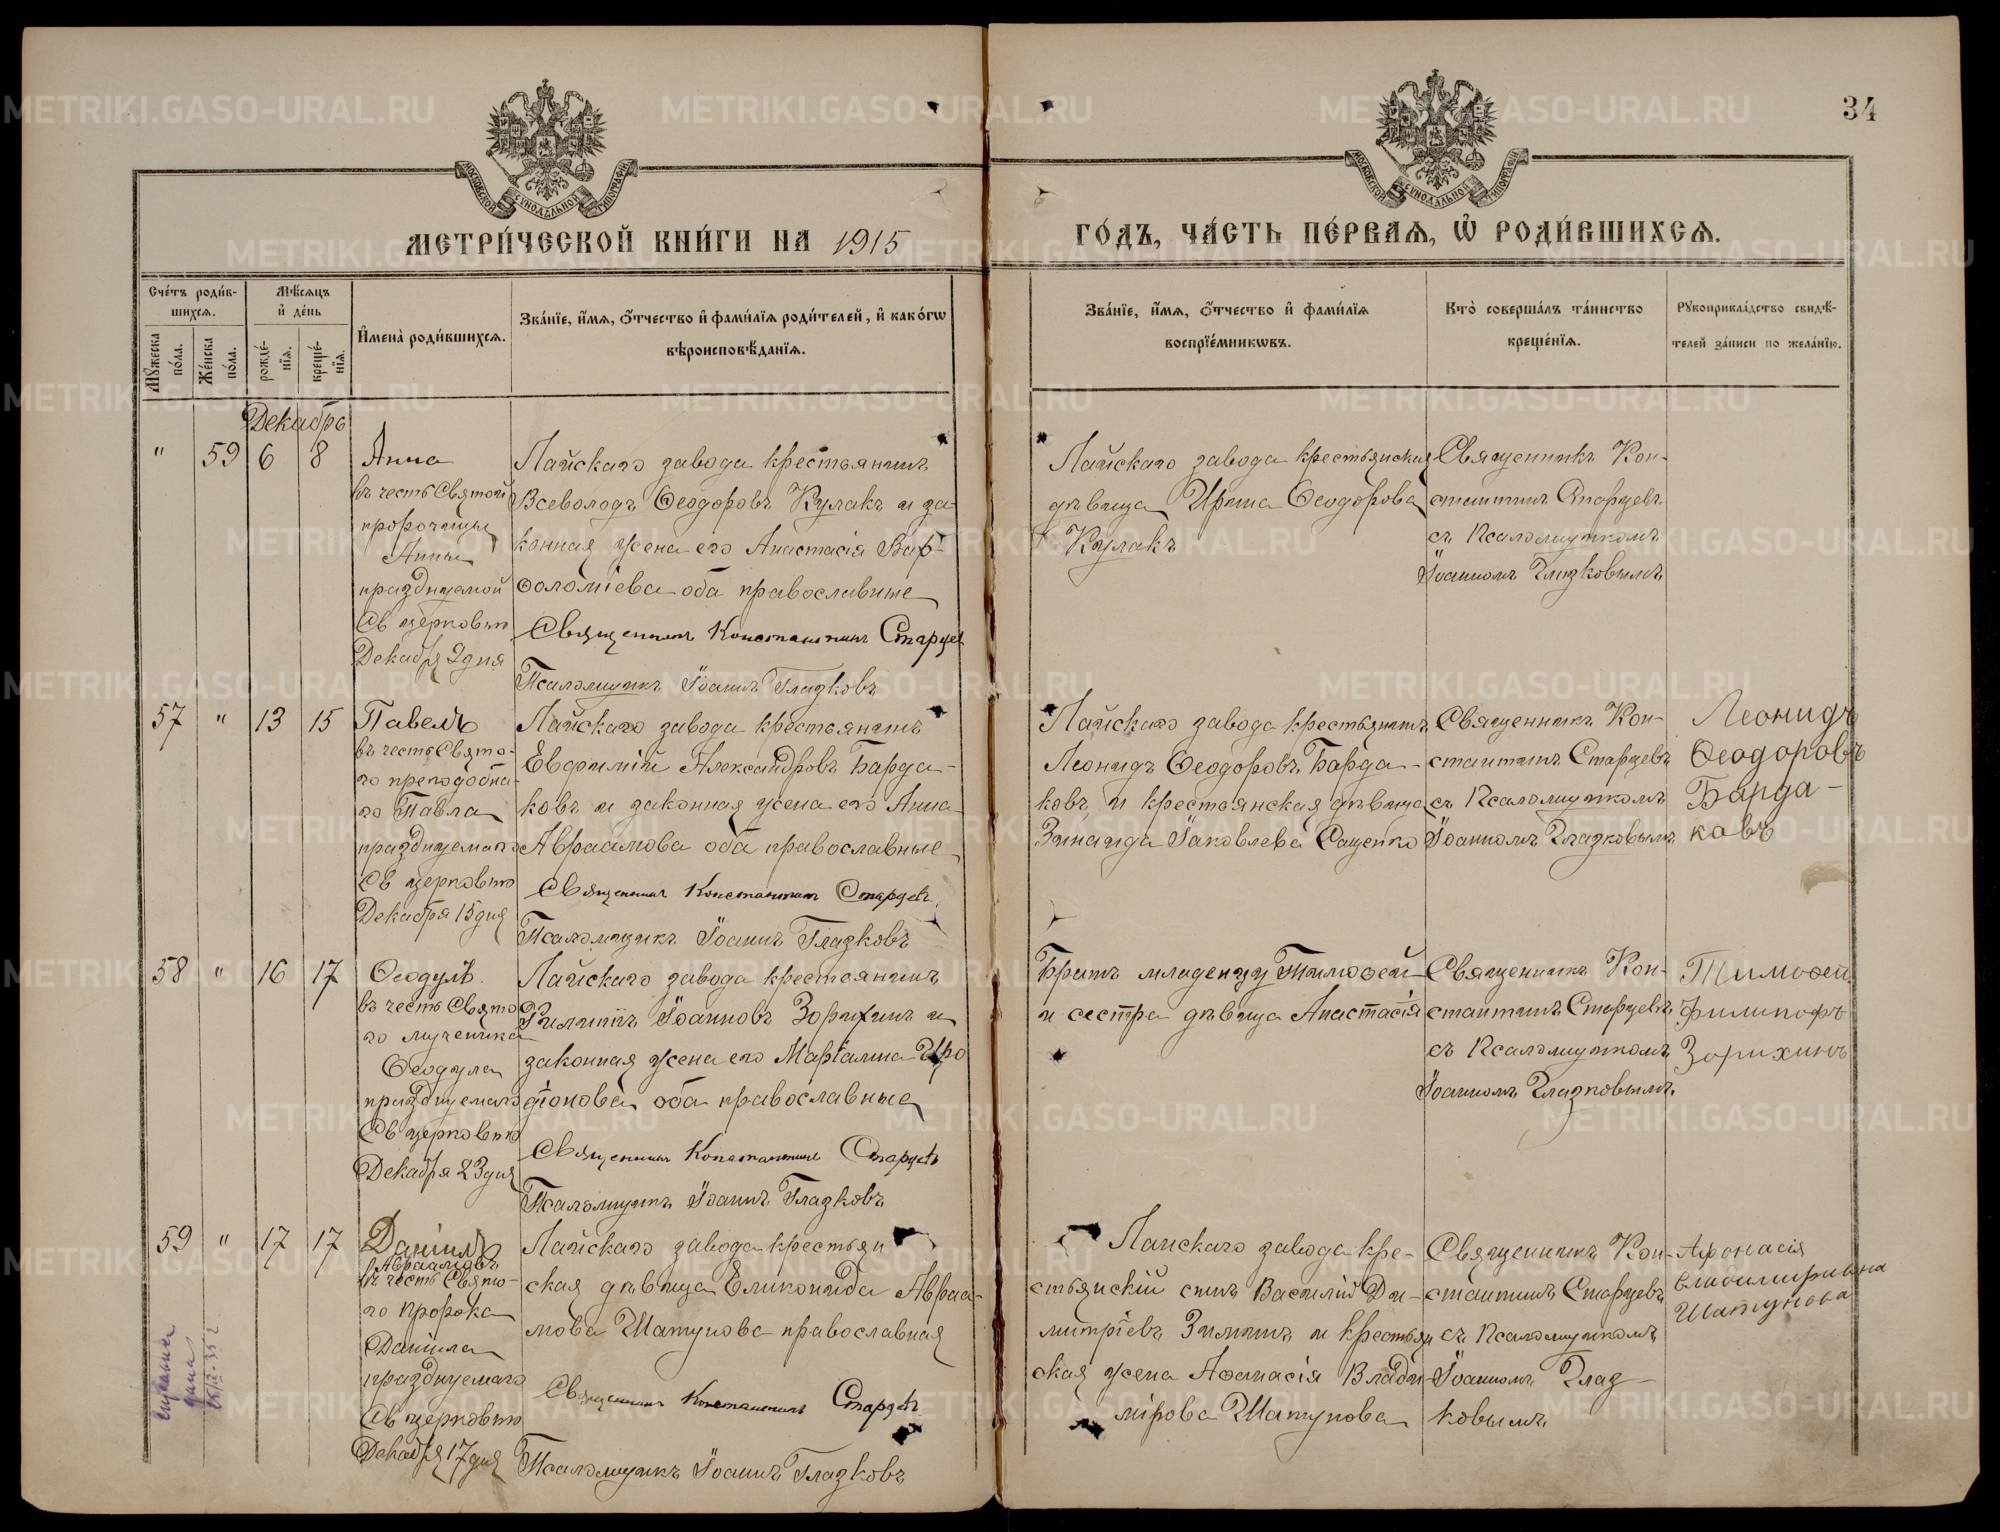 34
МОСКОВСКОЙ СѴНОДАЛЬНОЙ ТИПОГРАФІИ
МОСКОВСКОЙ СѴНОДАЛЬНОЙ ТИПОГРАФІИ
МЕТРИ́ЧЕСКОЙ КНИ́ГИ НА 1915
ГО́ДЪ, ЧА́СТЬ ПЕ́РВАѦ, Ѡ҆ РОДИ́ВШИХСѦ.
Сче́тъ роди́в-
шихсѧ.
Мꙋ́жеска по́ла.
Же́нска по́ла.
Мѣ́сѧцъ и҆ де́нь
рожде́-
нїѧ.
креще́-
нїѧ.
И҆мена̀ роди́вшихсѧ.
Зва́нїе, и҆́мѧ, ѻ҆́тчество и҆ фами́лїѧ роди́телей, и҆ како́гѡ
вѣроисповѣ́данїѧ.
Зва́нїе, и҆́мѧ, ѻ҆́тчество и҆ фами́лїѧ
воспрїе́мникѡвъ.
Кто̀ соверша́лъ та́инство
креще́нїѧ.
Рꙋкоприкла́дство свидѣ́-
телей за́писи по жела́нїю.
Декабрь
" 59 6 8
Анна
въ честь Святой
пророчицы
Анны
празднуемой
Св церковью
Декабря 9 дня
Лайскаго завода крестьянинъ
Всеволодъ Ѳеодоровъ Кулакъ и за-
конная жена его Анастасія Варѳ-
оломіева оба православные
Священникъ Константинъ Старцев
Псаломщикъ Іоаннъ Гладковъ
Лайскаго завода крестьянская
дѣвица Ирина Ѳеодорова
Кулакъ
Священникъ Кон-
стантинъ Старцевъ
съ Псаломщикомъ
Іоанномъ Гладковымъ
57 " 13 15
Павелъ
въ честь Свято-
го преподобна-
го Павла
празднуемаго
Св церковью
Декабря 15 дня
Лайскаго завода крестьянинъ
Евфимій Александровъ Барда-
ковъ и законная жена его Анна
Авраамова оба православные
Священникъ Константинъ Старцевъ
Псаломщикъ Іоаннъ Гладковъ
Лайскаго завода крестьянинъ
Леонидъ Ѳеодоровъ Барда-
ковъ и крестьянская дѣвица
Зинаида Іаковлева Саценко
Священникъ Кон-
стантинъ Старцевъ
съ Псаломщикомъ
Іоанномъ Гладковымъ
Леонидъ
Ѳеодоровъ
Барда-
ковъ
58 " 16 17
Ѳеодулъ
въ честь Свято
го мученика
Ѳеодула
празднуемаго
Св церковью
Декабря 23 дня
Лайскаго завода крестьянинъ
Филиппъ Іоанновъ Зорихинъ и
законная жена его Маріамна Иро
діонова оба православные
Священникъ Константинъ Старцевъ
Псаломщикъ Іоаннъ Гладковъ
Братъ младенцу Тимоѳей
и сестра дѣвица Анастасія
Священникъ Кон-
стантинъ Старцевъ
съ Псаломщикомъ
Іоанномъ Гладковымъ
Тимоѳей
Филипофъ
Зорихинъ
59 " 17 17
Даніилъ
Авраамовъ
въ честь Свято-
го Пророка
Даніила
празднуемаго
Св церковью
Декабря 17 дня
Лайскаго завода крестьян
ская дѣвица Еликонида Авраа-
мова Шатунова православная
Священникъ Константинъ Старцевъ
Псаломщикъ Іоаннъ Гладковъ
Лайскаго завода кре-
стьянскій сынъ Василій Ди-
митріевъ Зиминъ и крестьян
ская жена Аѳанасія Влади-
мірова Шатунова
Священникъ Кон-
стантинъ Старцевъ
съ Псаломщикомъ
Іоанномъ Глад-
ковымъ
Афонасія
владимировна
Шатунова
METRIKI.GASO-URAL.RU